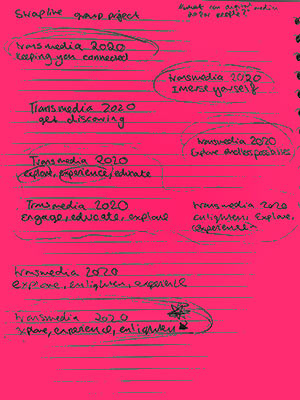 Strapline group project
What can digital media
Transmedia 2020
keeping you connected
transmedia 2020
Imerse yourself
Transmedia 2020
get discovering
transmedia 2020
Explore endless possibilities
Transmedia 2020
explore, experience, educate
Transmedia 2020
engage, educate, explore
transmedia 2020
enlighten, explore,
experience
transmedia 2020
explore, enlighten, experience
Transmedia 2020
explore, experience, enlighten